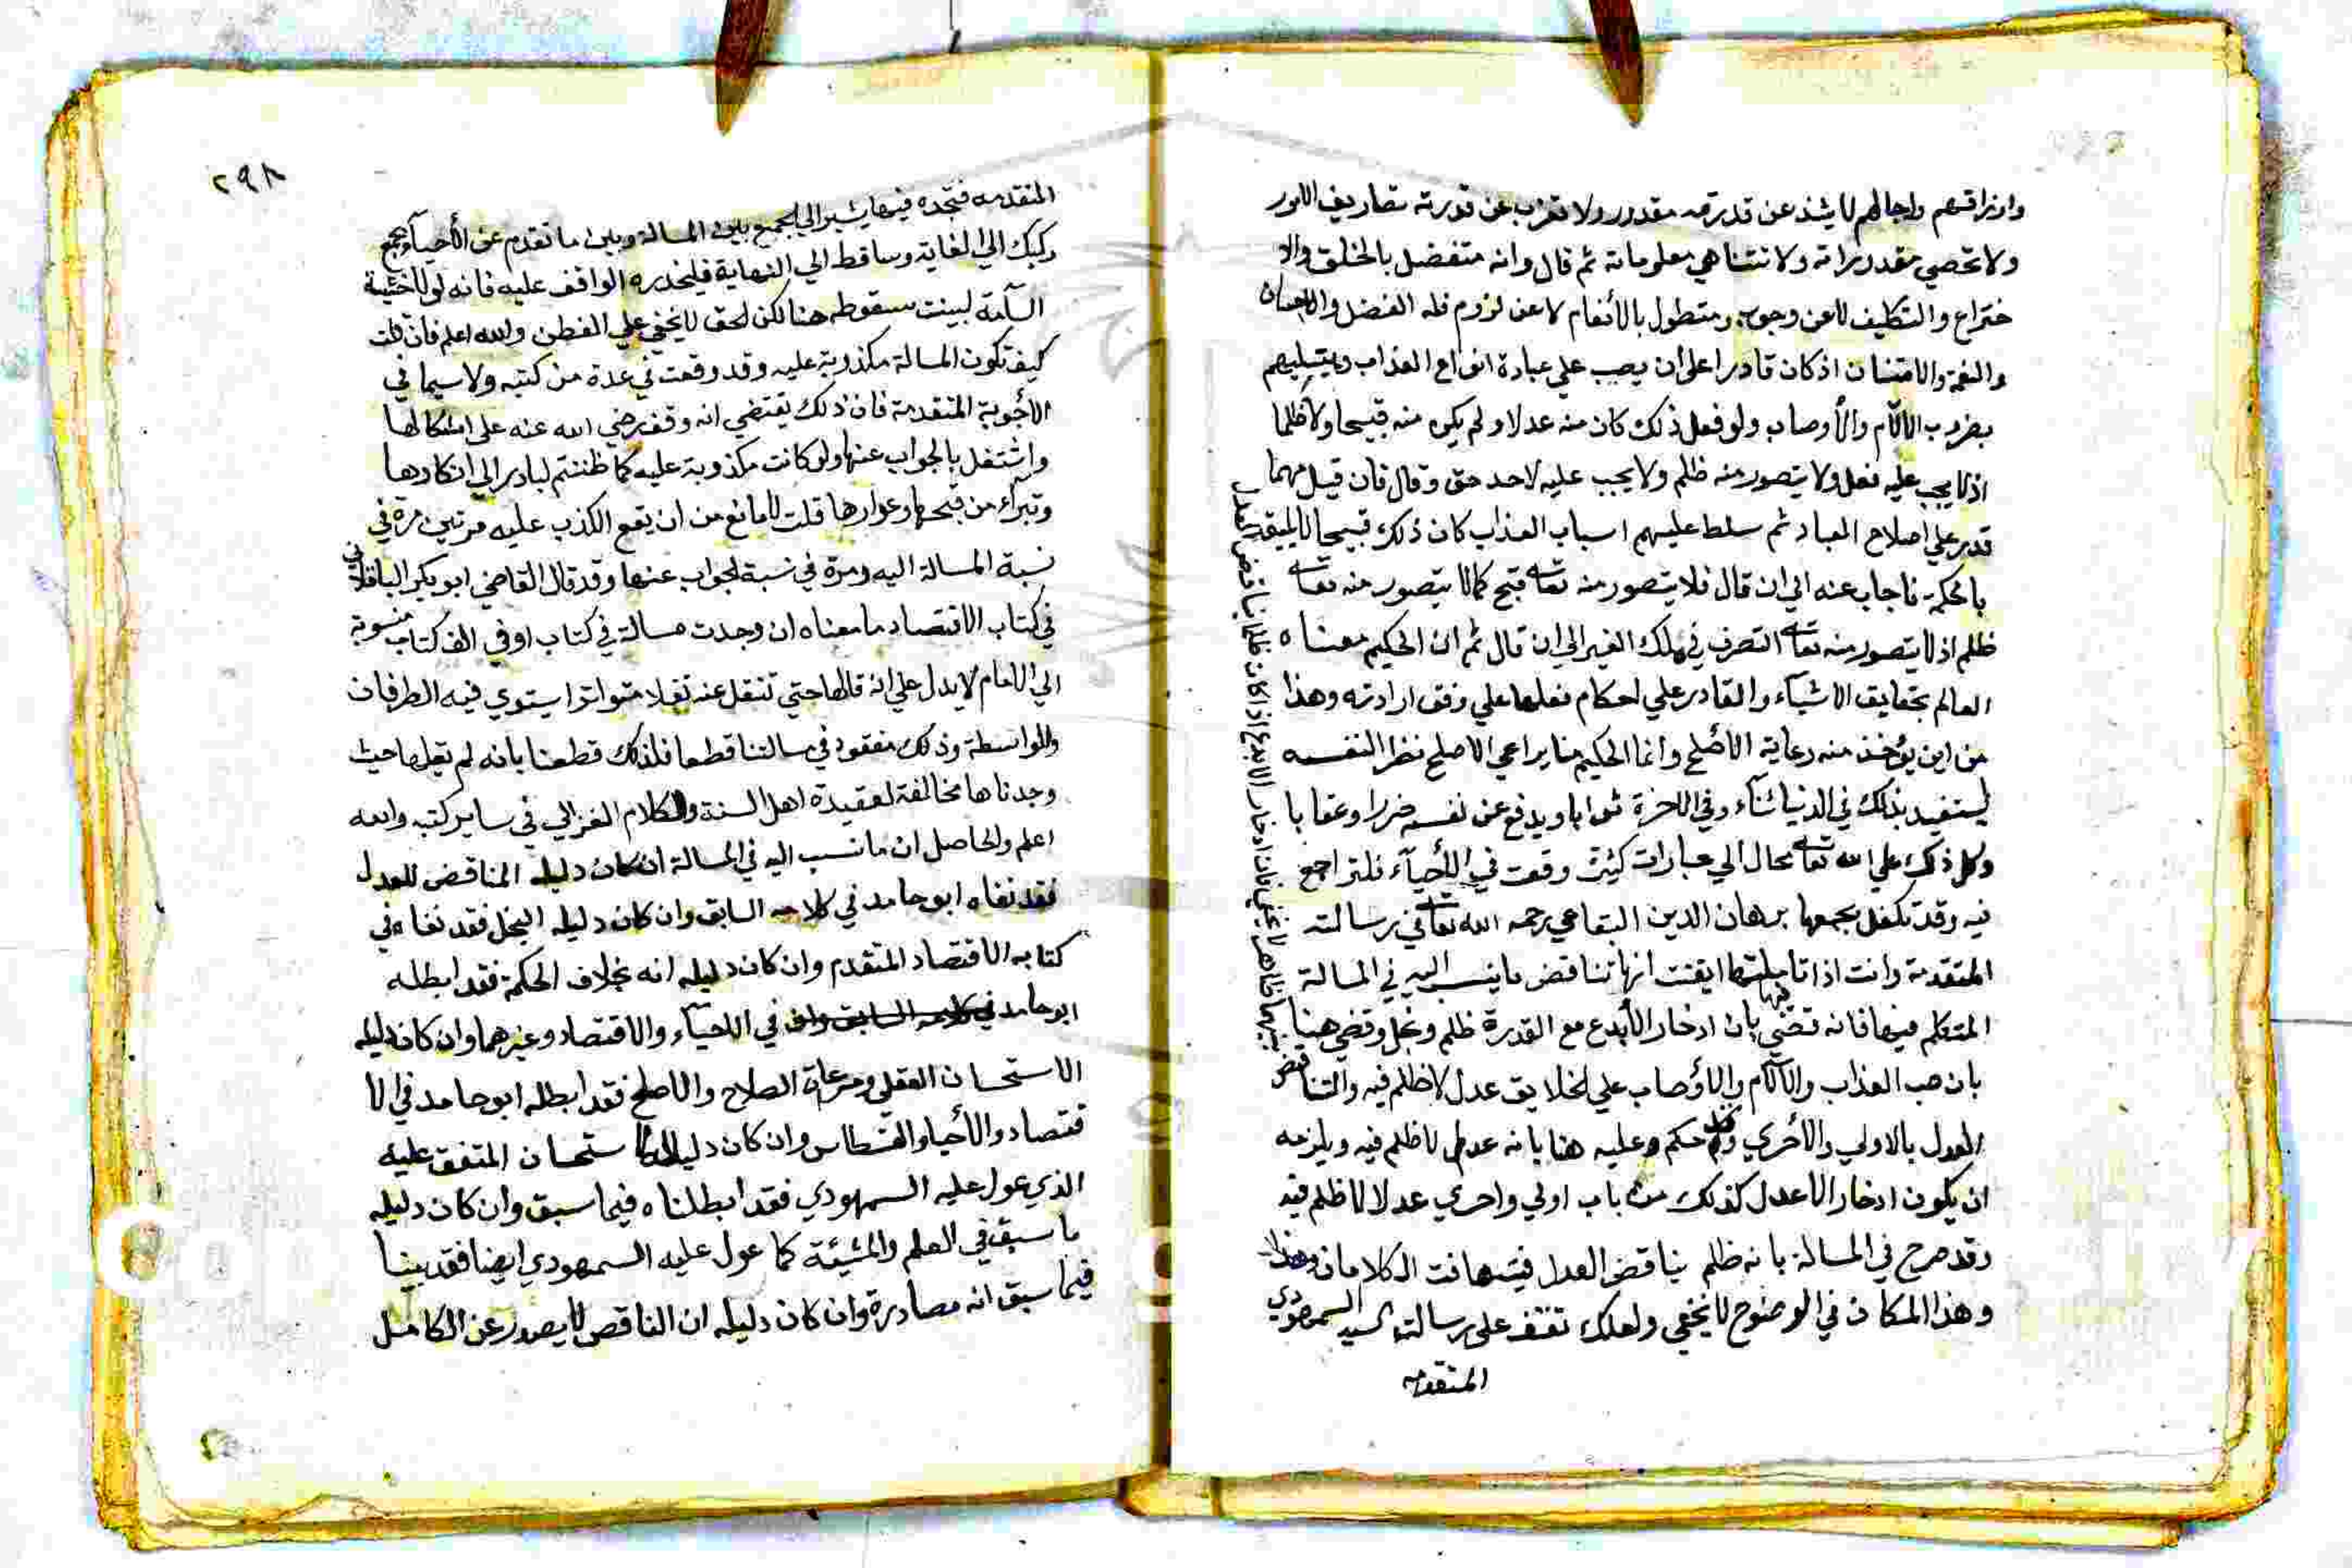 وارزاقهم واجالهم لا يشذ عن قدرته مقدور ولا تعزب عن قدرته تصاريف الامور
ولا تحصي مقدوراته ولا تتناهي معلوماته ثم قال وانه متفضل بالخلق والا
ختراع والتكليف لا عن وجوب ومتطول بالأنعام لا عن لزوم فله الفضل والاحسان
والنعمة والامتنان اذ كان قادرا علي أن يصب علي عباده انواع العذاب ويبتليهم
بضروب الآلام والأوصاب ولو فعل ذلك كان منه عدلا ولم يكن منه قبيحا ولا ظلما
اذ لا يجب عليه فعل ولا يتصور منه ظلم ولا يجب عليه لاحد حق وقال فان قيل مهما
قدر علي اصلاح العباد ثم سلط عليهم اسباب العذاب كان ذلك قبيحا لا يليق
بالحكمة فاجاب عنه الي ان قال فلا يتصور منه تعا قبح كما لا يتصور منه تعا
ظلم اذ لا يتصور منه تعا التصرف في ملك الغير الي ان قال ثم ان الحكيم معناه
العالم بحقايق الاشيآء والقادر علي احكام فعلها علي وفق ارادته وهذا
من اين يؤخذ منه رعاية الأصلح وانما الحكيم منا يراعي الاصلح نظرا لنفسه
ليستفيد بذلك في الدنيا ثنآء وفي الاخرة ثوابا ويدفع عن نفسه ضررا وعقابا
وكل ذلك علي الله تعا محال الي عبارات كثيرة وقعت في الأحيآء فلتراجع
فيه وقد تكفل بجمعها برهان الدين البقاعي رحمه الله تعا في رسالته
المتقدمة وانت اذا تاملتها ايقنت انها تناقض ما ينسب اليه في المسالة
المتكلم فيها فانه قضي فيها بان ادخار الأبدع مع القدرة ظلم وبخل وقضي هنا
بان صب العذاب والآلام والأوصاب علي الخلايق عدل لا ظلم فيه والتناقض
بينهما ظاهر لا يخفي فان ادخار الابدع اذا كان ظلما يناقض العدل
العدل بالاولي والأحري وقد حكم عليه هنا بانه عدل لا ظلم فيه ويلزمه
ان يكون ادخار الاعدل كذلك من باب اولي واحري عدلا لا ظلم فيه
وقد صرح في المسالة بانه ظلم يناقض العدل فيتهافت الكلامان وهذا
وهذا المكان في الوضوح لا يخفي ولعلك تقف علي رسالة السيد السمهودي
المتقدمه
٢٩٨
المتقدمه فتجده فيها يشير الي الجمع بين المسالة وبين ما تقدم عن الأحيآ وهو جمع
ركيك الي الغاية وساقط الي النهاية فليحذره الواقف عليه فانه لولا خشية
السآمة لبينت سقوطه هنا لكن الحق لا يخفي علي الفطن والله اعلم فان قلت
كيف تكون المسالة مكذوبة عليه وقد وقعت في عدة من كتبه ولا سيما في
الأجوبة المتقدمة فان ذلك يقتضي انه وقف رضي الله عنه علي اشكالها
واشتغل بالجواب عنها ولو كانت مكذوبة عليه كما ظننتم لبادر الي انكارها
وتبرأ من قبحها وعوارها قلت لا مانع من ان يقع الكذب عليه مرتين مرة في
نسبة المسالة اليه ومرة في نسبة الجواب عنها وقد قال القاضي ابو بكر الباقلاني
في كتاب الانتصار ما معناه ان وجدت مسالة في كتاب او في الف كتاب منسوبة
الي الامام لا يدل علي انه قالها حتي تنقل عنه نقلا متواترا يستوي فيه الطرفان
والواسطة وذلك مفقود في مسالتنا قطعا فلذلك قطعنا بانه لم يقلها حيث
وجدناها مخالفة لعقيدة اهل السنة ولكلام الغزالي في ساير كتبه والله
اعلم والحاصل ان ما نسب اليه في المسالة ان كان دليله المناقض للعدل
فقد نفاه ابو حامد في كلامه السابق وان كان دليله البخل فقد نفاه في
كتابه الاقتصاد المتقدم وان كان دليله انه بخلاف الحكمة فقد ابطله
ابو حامد في الاحيآء والاقتصاد وغيرهما وان كان دليله
الاستحسان العقلي ومرعاة الصلاح والاصلح فقد ابطله ابو حامد في الا
قتصاد والأحيا والقسطاس وان كان دليله الاستحسان المتفق عليه
الذي عول عليه السمهودي فقد ابطلناه فيما سبق وان كان دليله
ما سبق في العلم والمشيئة كما عول عليه السمهودي ايضا فقد بينا
فيما سبق انه مصادرة وان كان دليله ان الناقص لا يصدر عن الكامل